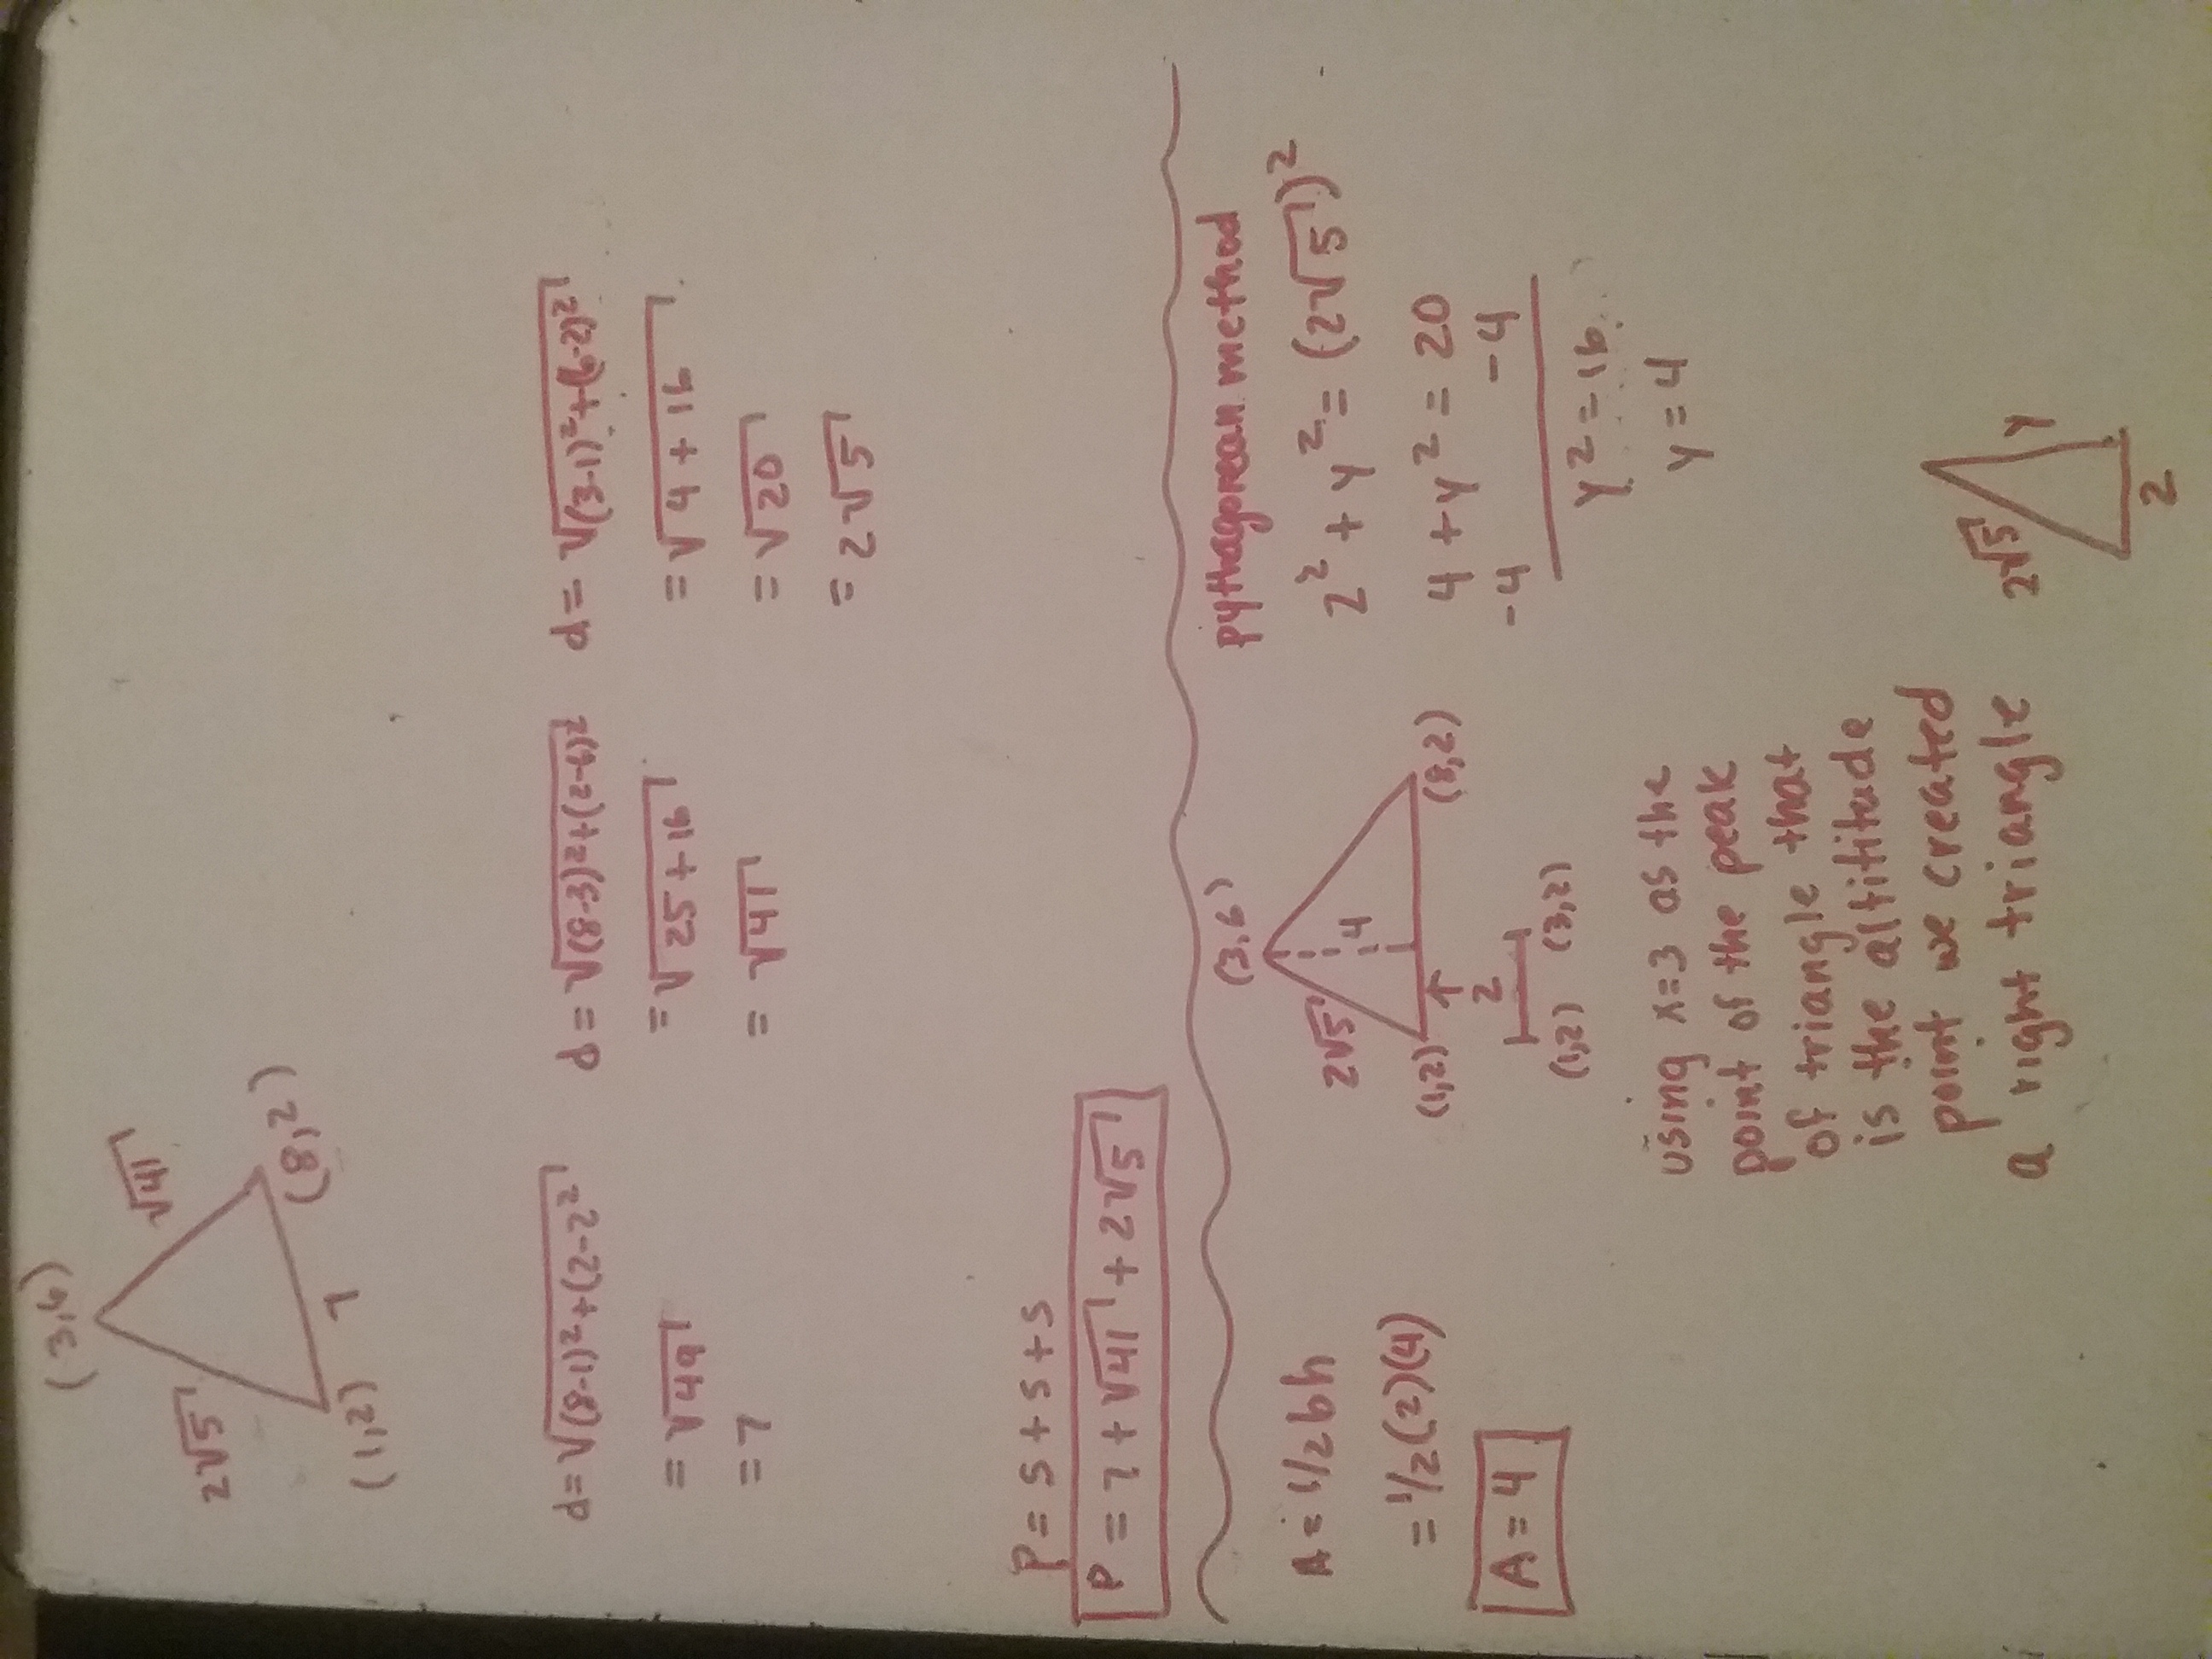 (3,6)
√41
2√5
(8,2)
7
(1,2)
d=√(8-1)²+(2-2²
= √49
= 7
d = √(8-3)²+(2-6)²
= √25+16
= √41
d = √(3-1)²+(6-2)²
= √4+16
= √20
= 2√5
P = s + s + s
P = 7 + √41 + 2√5
A = 1/2bh
= 1/2(2)(4)
A = 4
(3,6)
2√5
4
(1,2)
(8,2)
2
(1,2) (3,2)
using x=3 as the
point of the peak
of triangle that
is the altititude
point we created
a right triangle
pythagorean method
2² + y² = (2√5)²
4 + y² = 20
-4 -4
y² = 16
y = 4
2√5
y
2